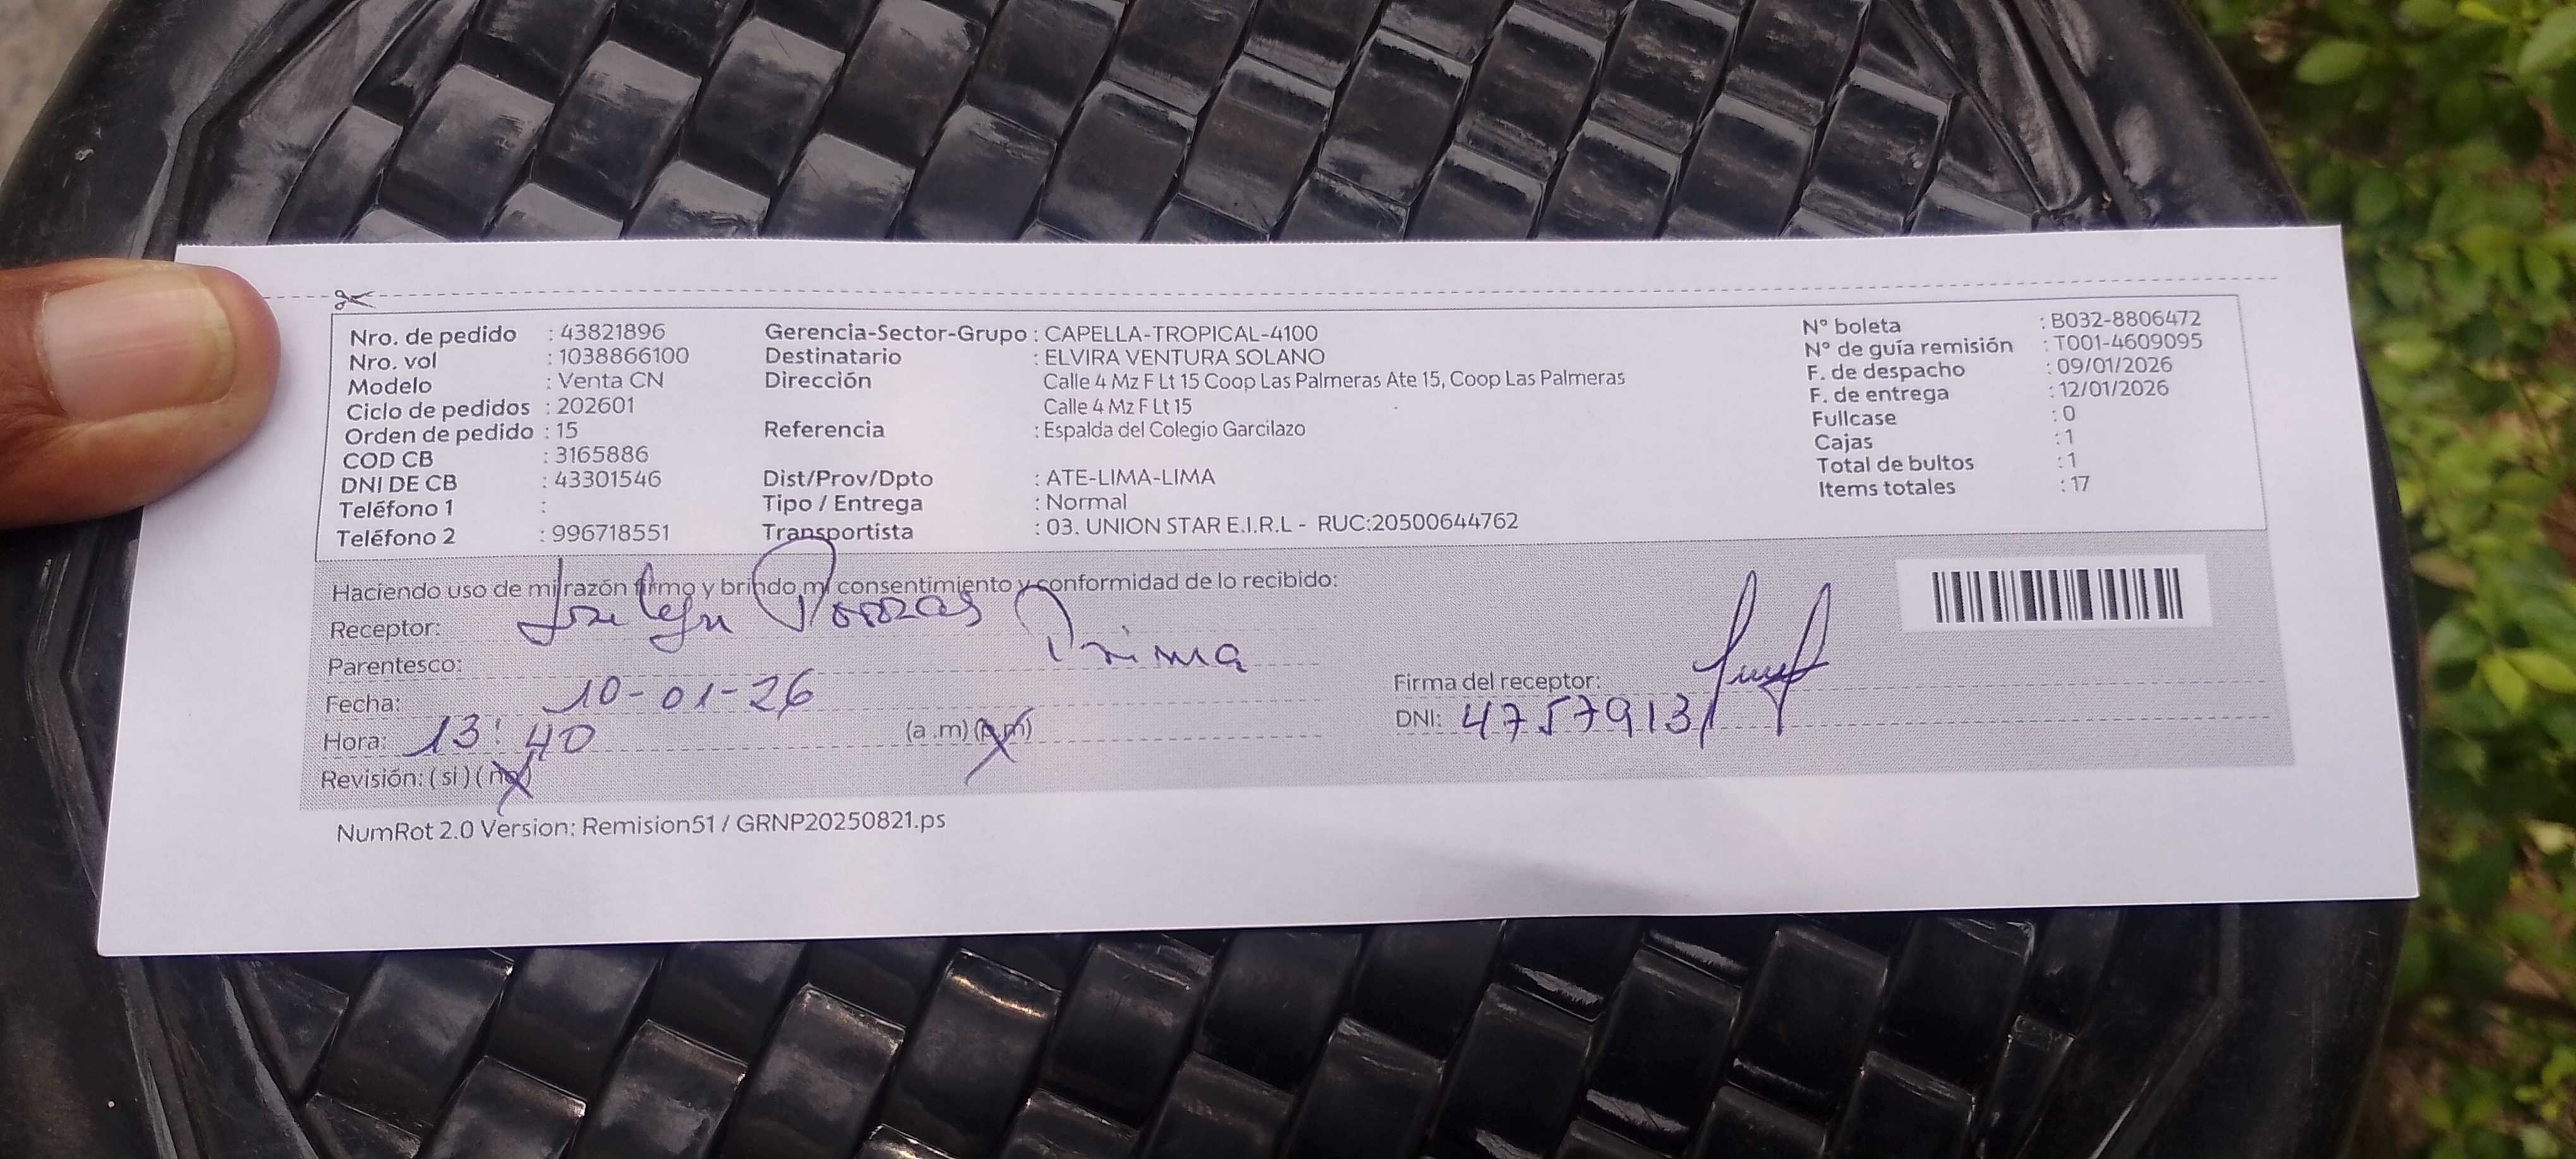 Nro. de pedido : 43821896 Gerencia-Sector-Grupo : CAPELLA-TROPICAL-4100 N° boleta : B032-8806472
Nro. vol : 1038866100 Destinatario : ELVIRA VENTURA SOLANO N° de guía remisión : T001-4609095
Modelo : Venta CN Dirección Calle 4 Mz F Lt 15 Coop Las Palmeras Ate 15, Coop Las Palmeras F. de despacho : 09/01/2026
Ciclo de pedidos : 202601 Calle 4 Mz F Lt 15 F. de entrega : 12/01/2026
Orden de pedido : 15 Referencia : Espalda del Colegio Garcilazo Fullcase : 0
COD CB : 3165886 Cajas : 1
DNI DE CB : 43301546 Dist/Prov/Dpto : ATE-LIMA-LIMA Total de bultos : 1
Teléfono 1 : Tipo / Entrega : Normal Items totales : 17
Teléfono 2 : 996718551 Transportista : 03. UNION STAR E.I.R.L - RUC:20500644762
Haciendo uso de mi razón firmo y brindo mi consentimiento y conformidad de lo recibido:
Receptor: Porras
Parentesco: Prima
Fecha: 10-01-26 Firma del receptor:
Hora: 13:40 (a .m) (p.m) DNI: 47579131
Revisión: ( si ) ( no )
NumRot 2.0 Version: Remision51 / GRNP20250821.ps